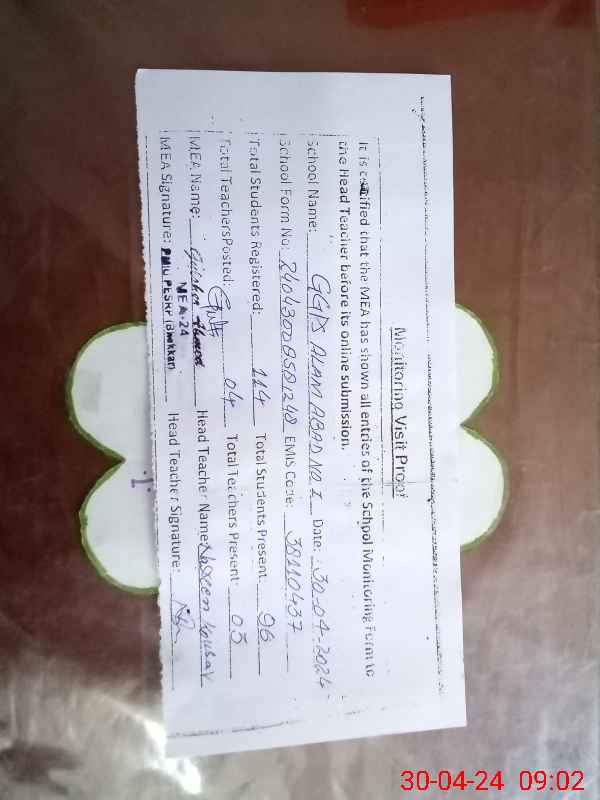 Monitoring Visit Proof
It is certified that the MEA has shown all entries of the School Monitoring Form to
the Head Teacher before its online submission.
School Name: GGPS ALAM ABAD NO. 1 Date: 30-04-2024
School Form No: EMIS Code: 38110437
Total Students Registered: 114 Total Students Present 96
Total Teachers Posted: 04 Total Teachers Present: 03
MEA Name: Ahmed Head Teacher Name: Nasreen Kousar
MEA-24
MEA Signature: PMIU PESRP (Bhakkar) Head Teacher Signature:
30-04-24 09:02